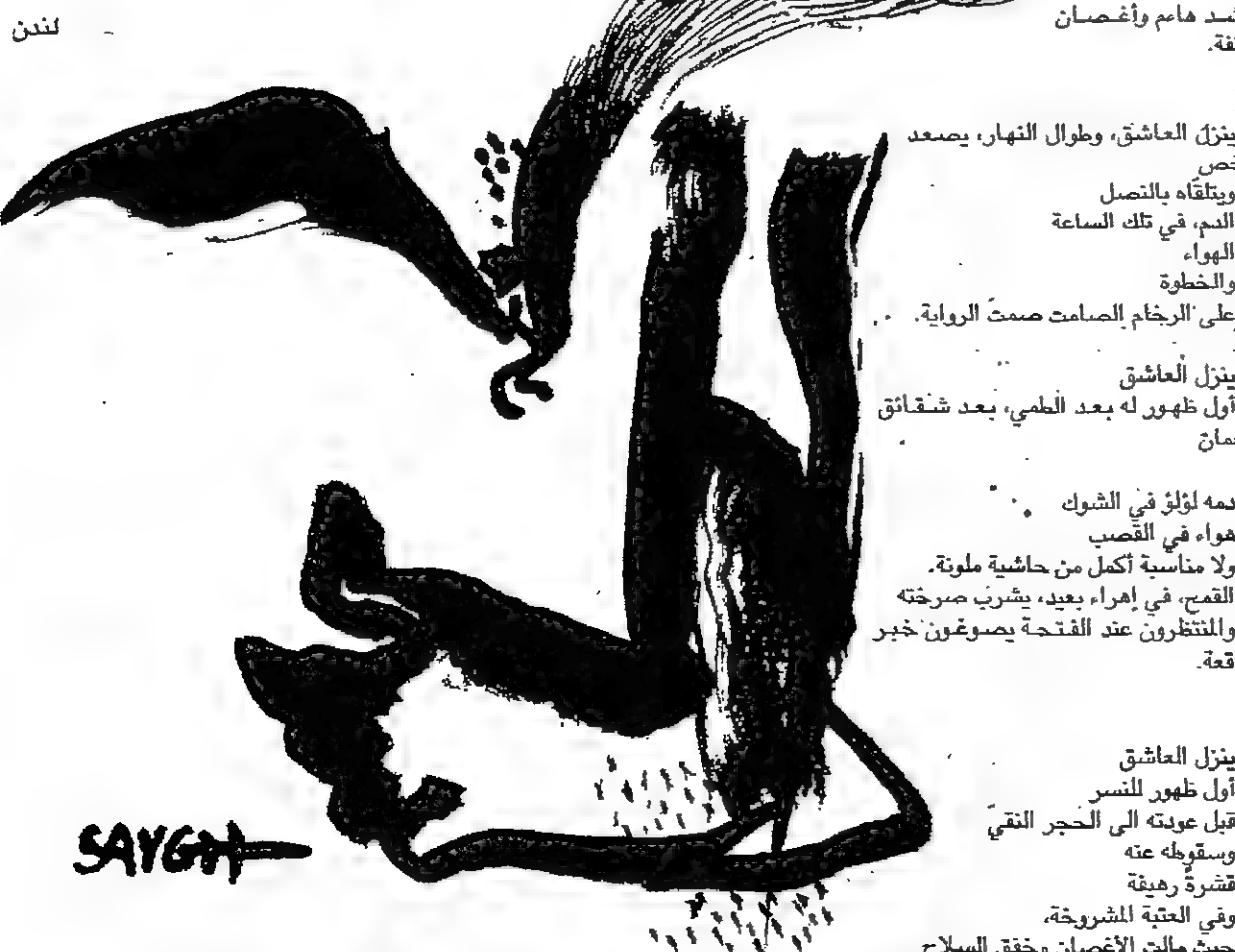 لندن -
هاءم وأغـصـان
ينزل العاشق، وطوال النهار، يصعد
ويتلقّاه بالنصل
الدم، في تلك الساعة
الهواء
والخطوة
على الرخام الصامت صمتَ الرواية.
ينزل العاشق
أول ظهور له بعد الطمي، بعد شقائق
دمه لؤلؤ في الشوك
هواء في القصب
ولا مناسبة أكمل من حاشية ملونة.
القمح، في إهراء بعيد، يشرب صرخته
والمنتظرون عند الفتحة يصوغون خبر
ينزل العاشق
أول ظهور للنسر
قبل عودته الى الحجر النقيّ
وسقوطه عنه
قشرةً رهيفة
وفي العتبة المشروخة،
حيث مالت الأغصان وخفق السلاح
SAYGH